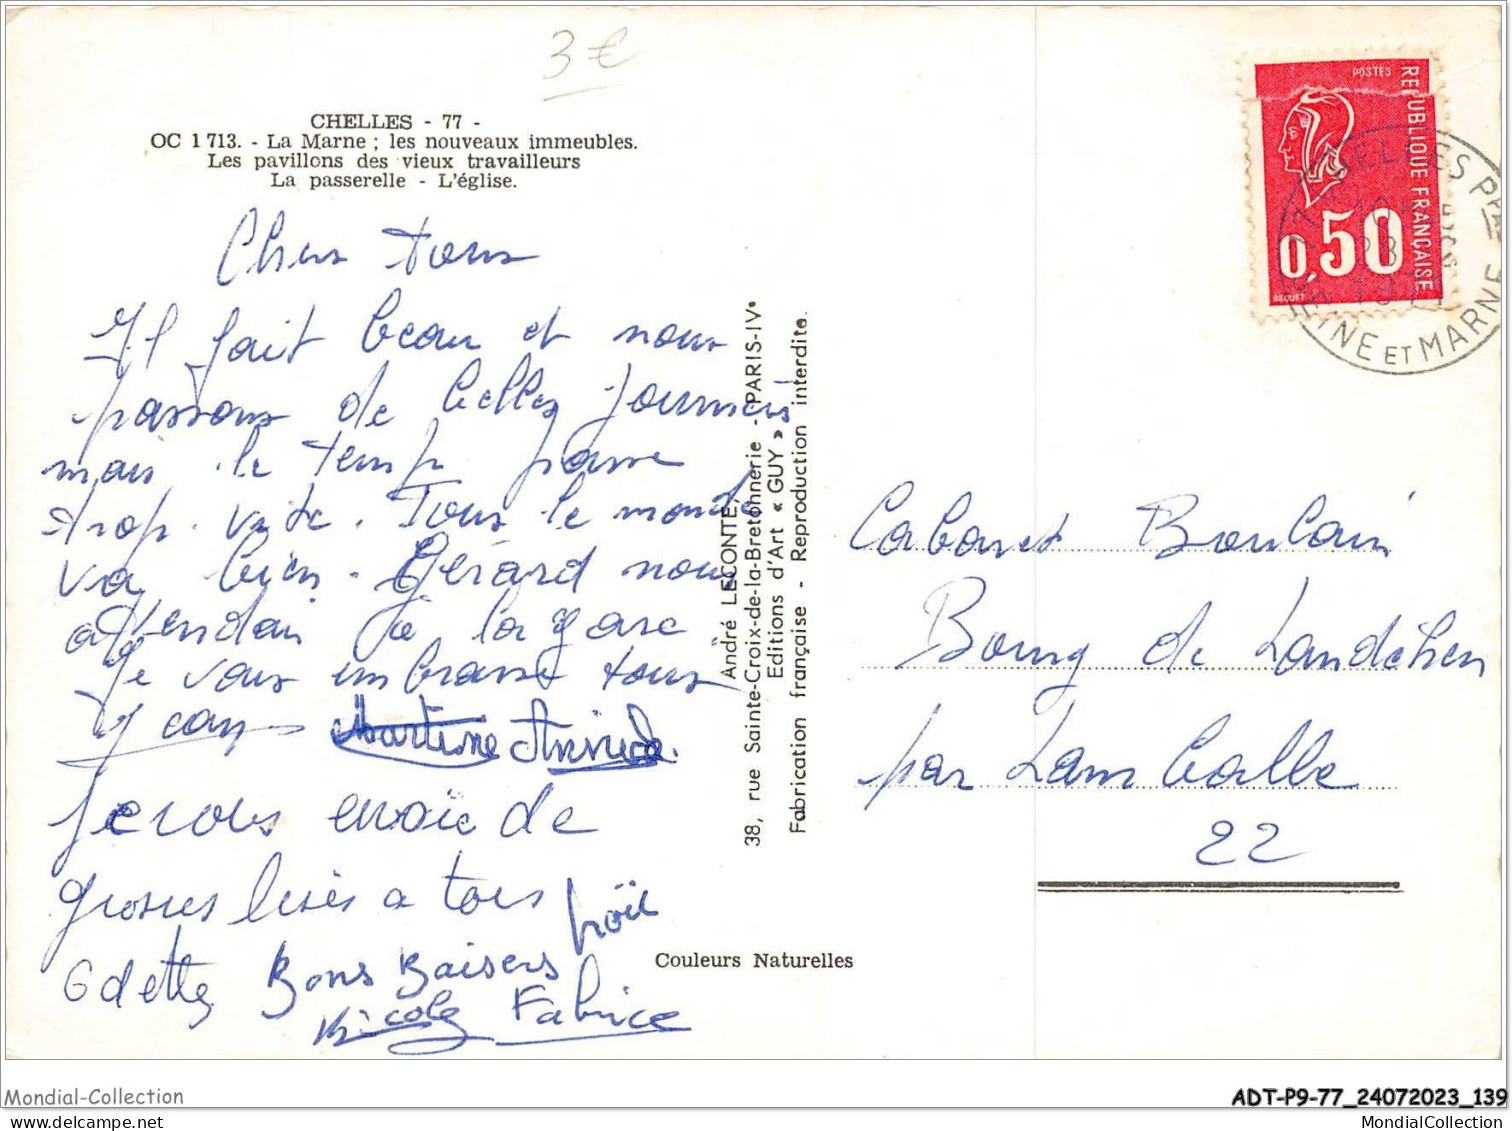 3 €
CHELLES - 77 -
OC 1 713. - La Marne ; les nouveaux immeubles.
Les pavillons des vieux travailleurs
La passerelle - L'église.
Chers tous
Il fait beau et nous
passons de belles journées
mais le temp passe
trop vite. Tous le monde
va bien. Gérard nous
attendai a la gare.
Je vous embrasse tous
Martine Annick.
Je vous envoie de
grosses bisès a tous
Odette Bons Baisers Noïl
Nicole Fabrice
André LECONTE,
38, rue Sainte-Croix-de-la-Bretonnerie - PARIS-IVe
Editions d'Art « GUY »
Fabrication française - Reproduction interdite.
Couleurs Naturelles
POSTES
REPUBLIQUE FRANÇAISE
0,50
BEQUET
77 CHELLES Pal
SEINE ET MARNE
Cabaret Boulain
Bourg de Landéhen
par Lamballe
22
Mondial-Collection
ADT-P9-77_24072023_139
www.delcampe.net
MondialCollection